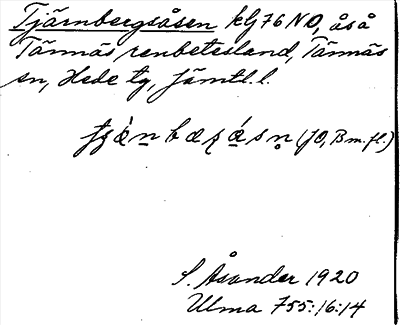 Tjärnbergsåsen klj 76 NO, ås å
Tännäs renbetesland, Tännäs
sn, Hede tg, Jämtl. l.
(JO, Bm. fl.)
S. Åsander 1920
Ulma 755:16:14